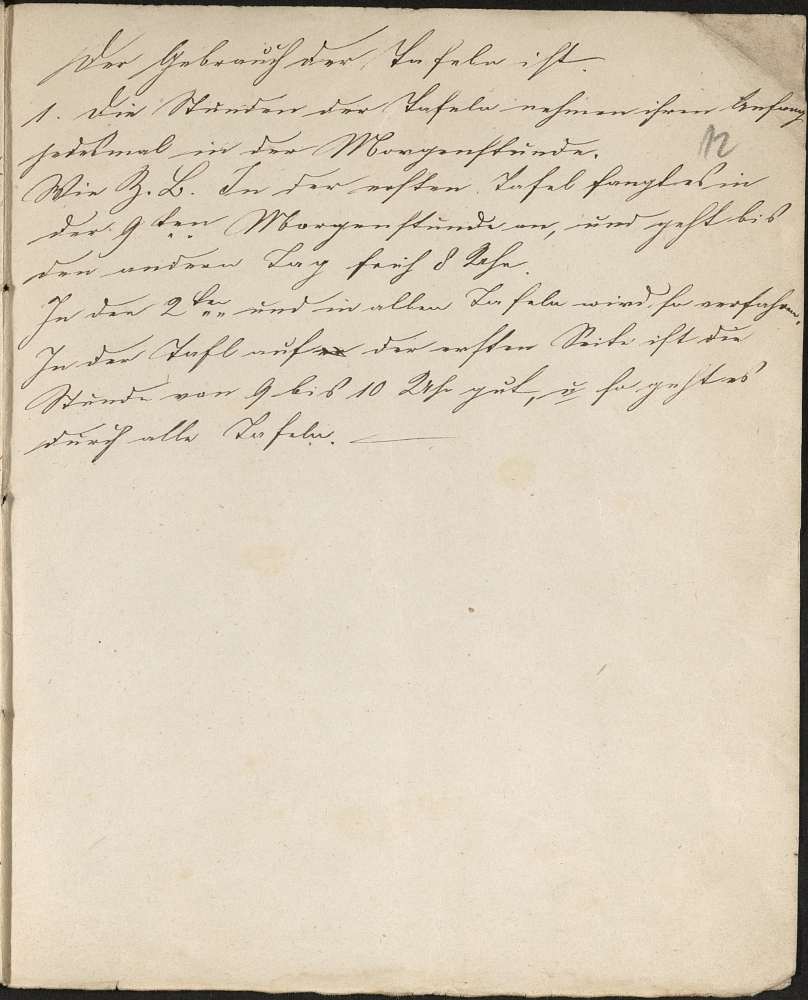 Der Gebrauch der Tafeln ist.
1. Die Stunden der Tafeln nehmen ihren Anfang
jedesmal in der Morgenstunde.
12
Wie Z. B. In der ersten Tafel fangt es in
der 9 ten Morgenstunde an, und geht bis
den andern Tag früh 8 Uhr.
In der 2 ten und in allen Tafeln wird so verfahren.
In der Tafl auf der ersten Seite ist die
Stunde von 9 bis 10 Uhr gut, u so geht es
durch alle Tafeln.